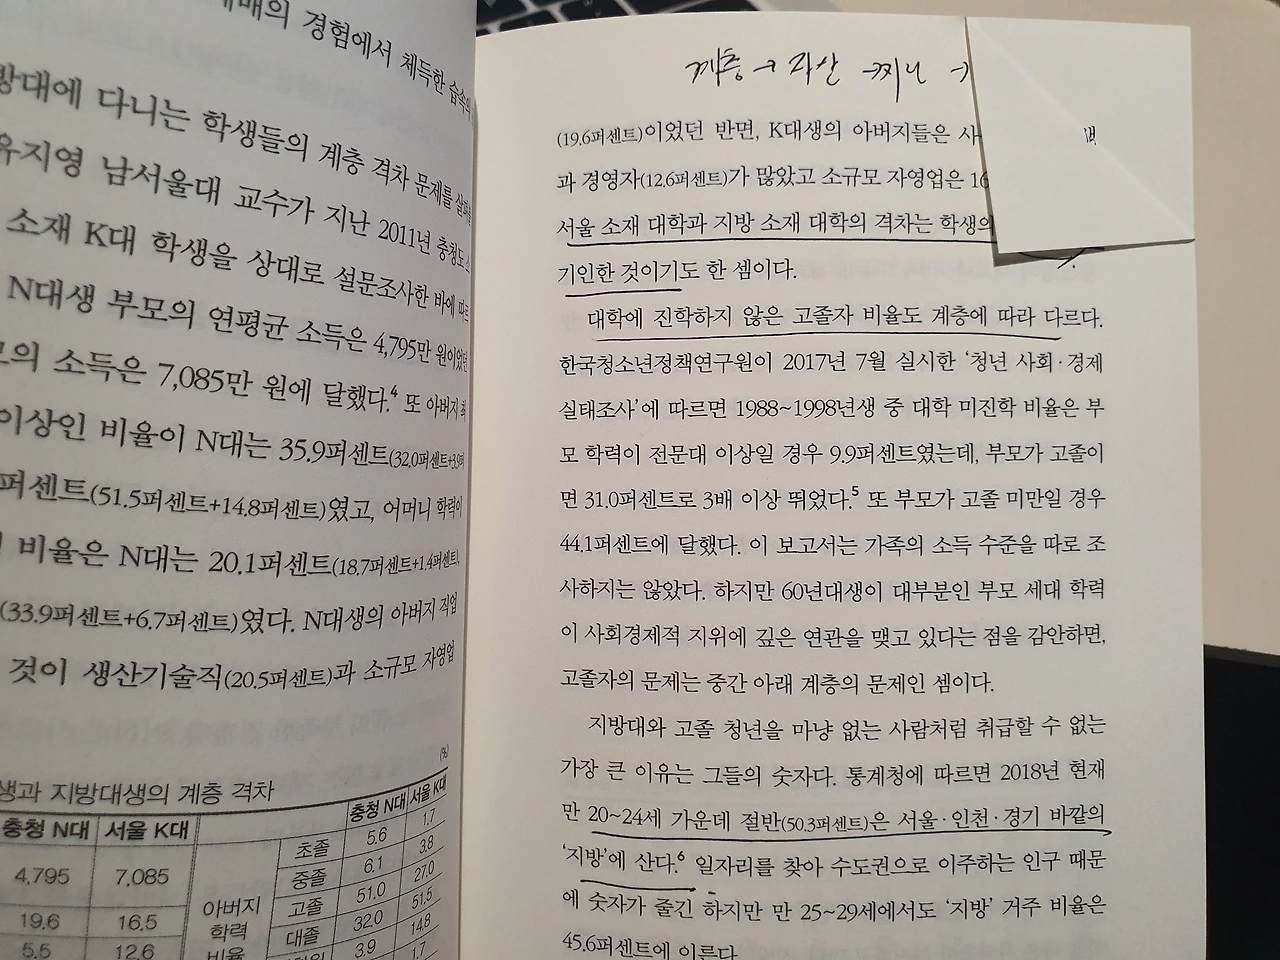 경험에서 체득한 습속의
방대에 다니는 학생들의 계층 격차 문제를
유지영 남서울대 교수가 지난 2011년 충청도
소재 K대 학생을 상대로 설문조사한 바에
N대생 부모의 연평균 소득은 4,795만 원이었던
소득은 7,085만 원에 달했다.4 또 아버지
이상인 비율이 N대는 35.9퍼센트(32.0퍼센트+3.9퍼
퍼센트(51.5퍼센트+14.8퍼센트)였고, 어머니 학력이
비율은 N대는 20.1퍼센트(18.7퍼센트+1.4퍼센트),
(33.9퍼센트+6.7퍼센트)였다. N대생의 아버지 직업
것이 생산기술직(20.5퍼센트)과 소규모 자영업
(%)
생과 지방대생의 계층 격차
충청 N대 서울 K대 충청 N대 서울 K대
4,795 7,085 아버지 학력 비율 초졸 5.6 1.7
중졸 6.1 3.8
19.6 16.5 고졸 51.0 27.0
5.5 12.6 대졸 32.0 51.5
3.9 14.8
1.7
계층 → 자산 →
(19.6퍼센트)이었던 반면, K대생의 아버지들은 사
과 경영자(12.6퍼센트)가 많았고 소규모 자영업은 16
서울 소재 대학과 지방 소재 대학의 격차는 학생의
기인한 것이기도 한 셈이다.
대학에 진학하지 않은 고졸자 비율도 계층에 따라 다르다.
한국청소년정책연구원이 2017년 7월 실시한 ‘청년 사회·경제
실태조사’에 따르면 1988~1998년생 중 대학 미진학 비율은 부
모 학력이 전문대 이상일 경우 9.9퍼센트였는데, 부모가 고졸이
면 31.0퍼센트로 3배 이상 뛰었다.5 또 부모가 고졸 미만일 경우
44.1퍼센트에 달했다. 이 보고서는 가족의 소득 수준을 따로 조
사하지는 않았다. 하지만 60년대생이 대부분인 부모 세대 학력
이 사회경제적 지위에 깊은 연관을 맺고 있다는 점을 감안하면,
고졸자의 문제는 중간 아래 계층의 문제인 셈이다.
지방대와 고졸 청년을 마냥 없는 사람처럼 취급할 수 없는
가장 큰 이유는 그들의 숫자다. 통계청에 따르면 2018년 현재
만 20~24세 가운데 절반(50.3퍼센트)은 서울·인천·경기 바깥의
‘지방’에 산다.6 일자리를 찾아 수도권으로 이주하는 인구 때문
에 숫자가 줄긴 하지만 만 25~29세에서도 ‘지방’ 거주 비율은
45.6퍼센트에 이른다